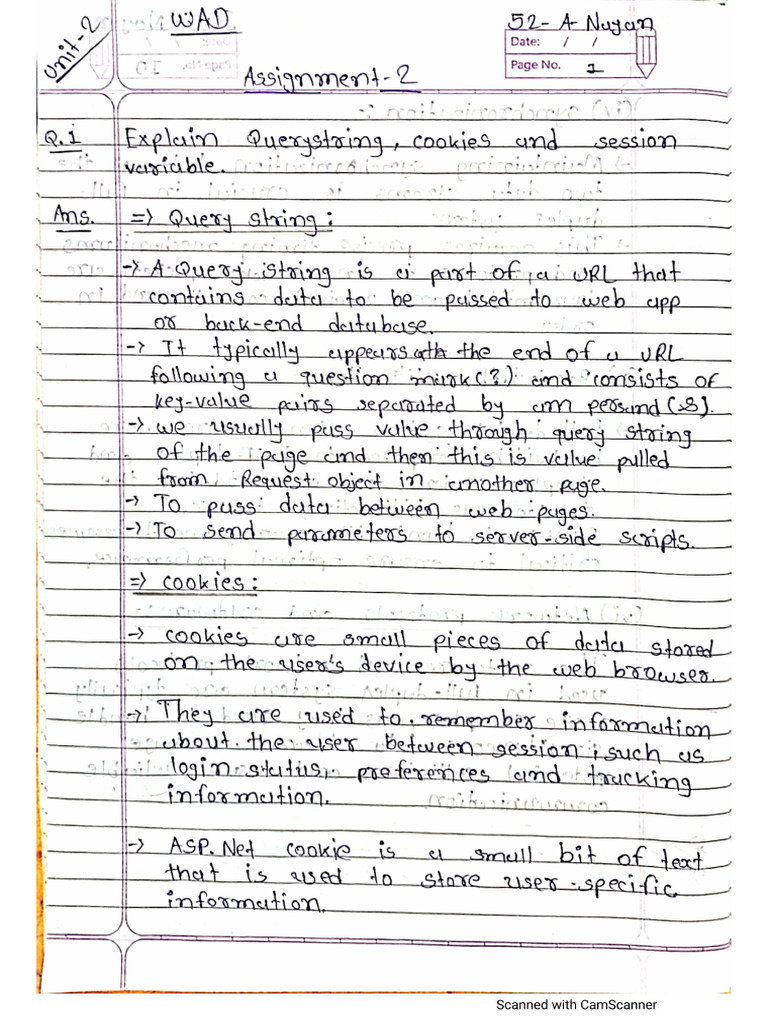 Unit-2
WAD.
52- A- Nayan
Date: / /
Page No. 1
Assignment-2
Q.1 Explain Querystring, cookies and session
variable.
Ans. => Query string :
-> A Query string is a part of a URL that
contains data to be passed to web app
or back-end database.
-> It typically appears at the end of a URL
following a question mark(?) and consists of
key-value pairs separated by am persand (&).
-> we usually pass value through query string
of the page and then this is value pulled
from Request object in another page.
-> To pass data between web pages.
-> To send parameters to server-side scripts.
=> cookies :
-> cookies are small pieces of data stored
on the user's device by the web browser.
-> They are used to remember information
about the user between session, such as
login status, preferences and tracking
information.
-> ASP.Net cookie is a small bit of text
that is used to store user-specific
information.
Scanned with CamScanner